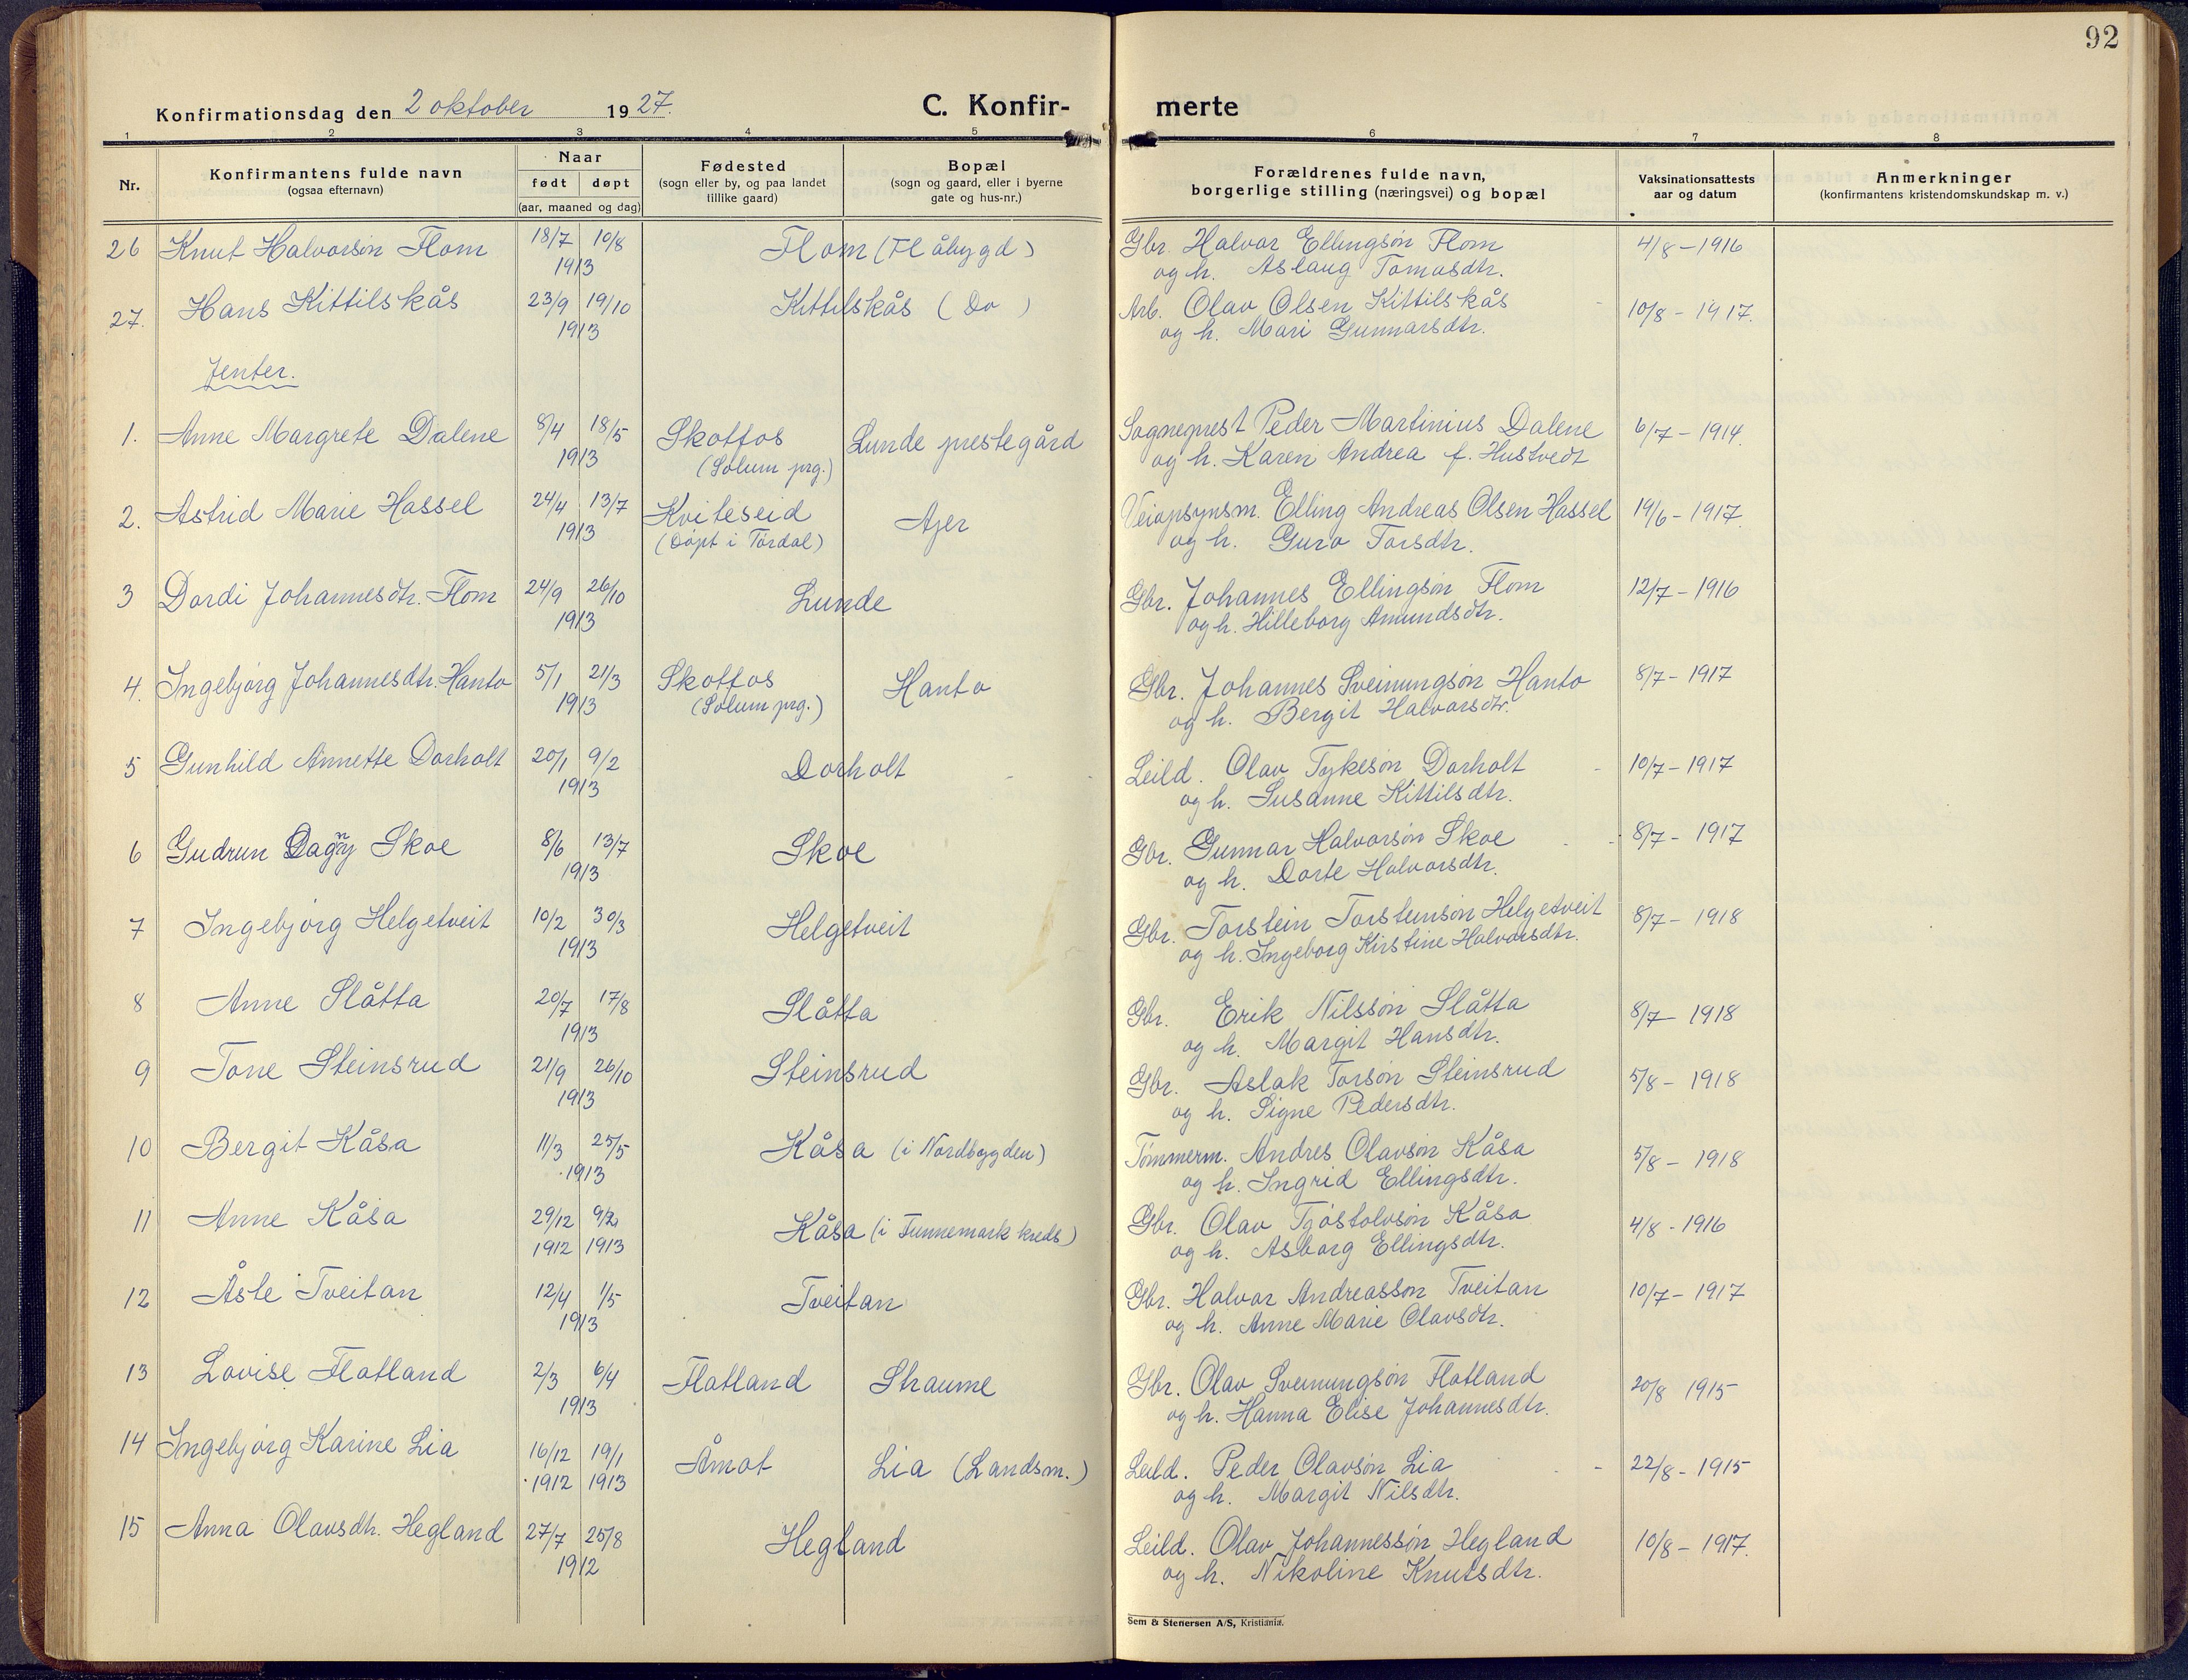 92
Konfirmationsdag den 2 oktober 1927.
C. Konfir- merte
1 2 3 4 5 6 7 8
Nr.
Konfirmantens fulde navn
(ogsaa efternavn)
Naar
født døpt
(aar, maaned og dag)
Fødested
(sogn eller by, og paa landet
tillike gaard)
Bopæl
(sogn og gaard, eller i byerne
gate og hus-nr.)
Forældrenes fulde navn,
borgerlige stilling (næringsvei) og bopæl
Vaksinationsattests
aar og datum
Anmerkninger
(konfirmantens kristendomskundskap m. v.)
26 Knut Halvorsøn Flom 18/7 10/8 Flom (Flåbygd) Gbr. Halvor Ellingsøn Flom 4/8 - 1916
1913 og h. Aslaug Tomasdtr.
27. Hans Kittilskås 23/9 19/10 Kittilskås (Do) Arb. Olav Olsen Kittilskås 10/8 - 1917.
1913 og h. Mari Gunnarsdtr.
Jenter.
1. Anne Margrete Dalene 8/4 18/5 Skotfos Lunde prestegård Sogneprest Peder Martinius Dalene 6/7 - 1914.
1913 (Solum prg.) og h. Karen Andrea f. Hustvedt
2. Astrid Marie Hassel 24/4 13/7 Kviteseid Ajer Veiopsynsm. Elling Andreas Olsen Hassel 19/6 - 1917.
1913 (Døpt i Tørdal) og h. Guro Torsdtr.
3 Dordi Johannesdtr. Flom 24/9 26/10 Lunde Gbr. Johannes Ellingsøn Flom 12/7 - 1916
1913 og h. Hilleborg Amundsdtr.
4. Ingebjørg Johannesdtr. Hanto 5/1 21/3 Skotfos Hanto Gbr. Johannes Sveinungsøn Hanto 8/7 - 1917
1913 (Solum prg.) og h. Bergit Halvorsdtr.
5 Gunhild Annette Dorholt 20/1 9/2 Dorholt Leild. Olav Tykesøn Dorholt 10/7 - 1917
1913 og h. Susanne Kittilsdtr.
6 Gudrun Dagny Skoe 8/6 13/7 Skoe Gbr. Gunnar Halvorsøn Skoe 8/7 - 1917
1913 og h. Dorte Halvorsdtr.
7 Ingebjørg Helgetveit 10/2 30/3 Helgetveit Gbr. Torstein Torsteinsøn Helgetveit 8/7 - 1918
1913 og h. Ingeborg Kirstine Halvorsdtr.
8 Anne Slåtta 20/7 17/8 Slåtta Gbr. Erik Nilssøn Slåtta 8/7 - 1918
1913 og h. Margit Hansdtr.
9 Tone Steinsrud 21/9 26/10 Steinsrud Gbr. Aslak Torsøn Steinsrud 5/8 - 1918
1913 og h. Signe Pedersdtr.
10 Bergit Kåsa 11/3 25/5 Kåsa (i Nordbygden) Tømmerm. Andres Olavsøn Kåsa 5/8 - 1918
1913 og h. Ingrid Ellingsdtr.
11 Anne Kåsa 29/12 9/2 Kåsa (i Tunnemark kreds) Gbr. Olav Tjøstolvsøn Kåsa 4/8 - 1916
1912 1913 og h. Asborg Ellingsdtr.
12 Åste Tveitan 12/4 1/5 Tveitan Gbr. Halvor Andreassøn Tveitan 10/7 - 1917
1913 og h. Anne Marie Olavsdtr.
13 Lovise Flatland 2/3 6/4 Flatland Straume Gbr. Olav Sveinungsøn Flatland 20/8 1915
1913 og h. Hanna Elise Johannesdtr.
14 Ingebjørg Karine Lia 16/12 19/1 Åmot Lia (Landsm.) Leild. Peder Olavsøn Lia 22/8 - 1915
1912 1913 og h. Margit Nilsdtr.
15 Anna Olavsdtr. Hegland 27/7 25/8 Hegland Leild. Olav Johannessøn Hegland 10/8 - 1917.
1912 og h. Nikoline Knutsdtr.
Sem & Stenersen A/S, Kristiania.